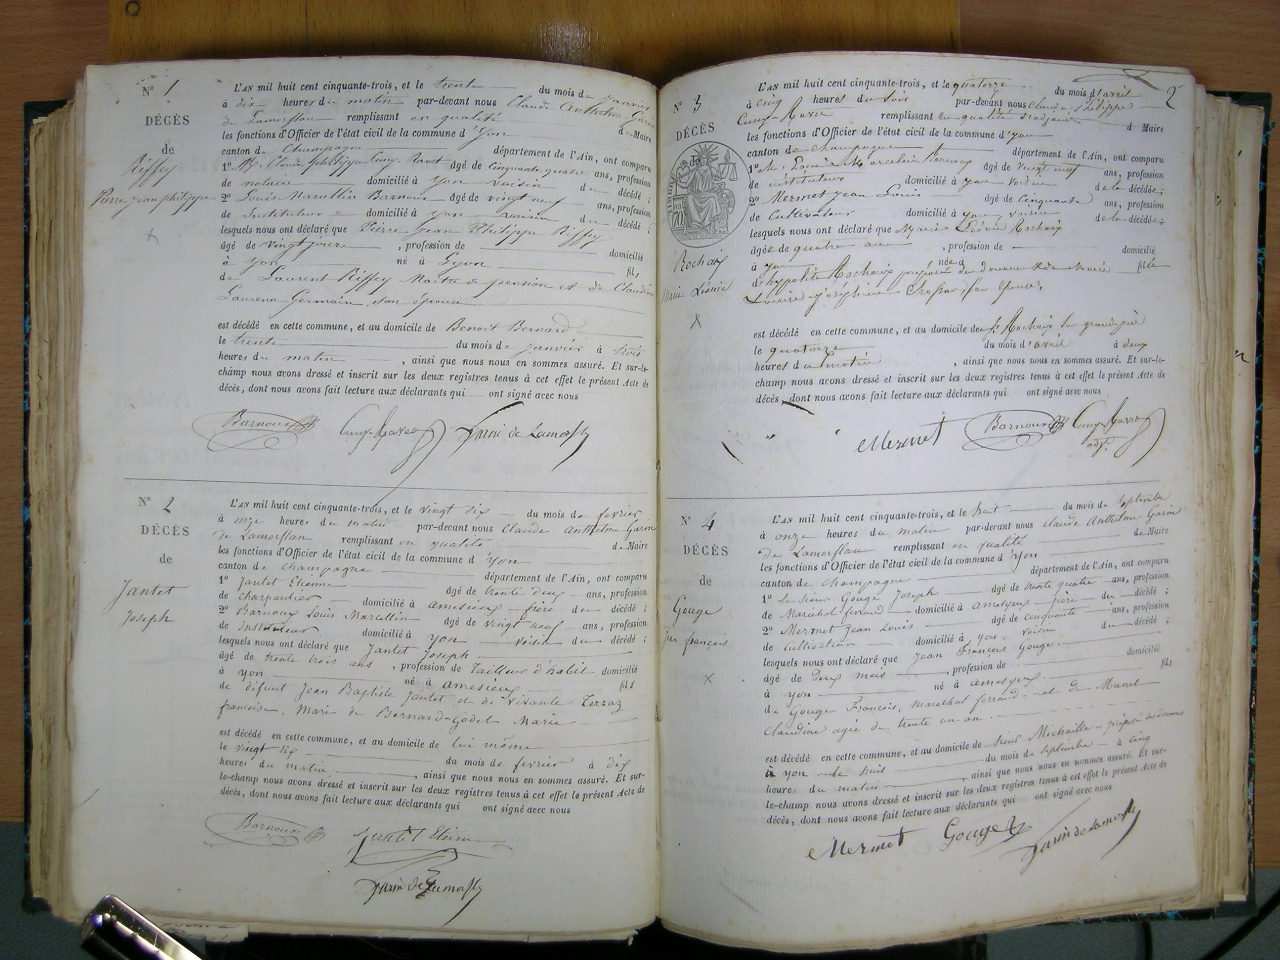 N° 1
DÉCÈS
de
Riffey
Pierre jean philippe
L'AN mil huit cent cinquante-trois, et le trente du mois de janvier
à dix heures du matin par-devant nous Claude Anthelme
de Lamorflan remplissant en qualité de Maire
les fonctions d'Officier de l'état civil de la commune d'Yon
canton de Champagne département de l'Ain, ont comparu
1° Claude philippe âgé de cinquante quatre ans, profession
de notaire domicilié à Yon voisin du décédé ;
2° Louis Marcellin Barnoux âgé de vingt neuf ans, profession
de Instituteur domicilié à yon voisin du décédé ;
lesquels nous ont déclaré que Pierre Jean Philippe Riffey
âgé de vingt jours , profession de domicilié
à Yon né à Lyon fils
de Laurent Riffey Maître de pension et de Claudine
Laurena Germain, son épouse
est décédé en cette commune, et au domicile de Benoit Bernard
le trente du mois de janvier à trois
heures du matin , ainsi que nous nous en sommes assuré. Et sur-le-
champ nous avons dressé et inscrit sur les deux registres tenus à cet effet le présent Acte de
décès, dont nous avons fait lecture aux déclarants qui ont signé avec nous
Barnoux
N° 2
DÉCÈS
de
Jantet
Joseph
L'AN mil huit cent cinquante-trois, et le vingt six du mois de fevrier
à onze heures du matin par-devant nous Claude Anthelme
de Lamorflan remplissant en qualité de Maire
les fonctions d'Officier de l'état civil de la commune d'Yon
canton de champagne département de l'Ain, ont comparu
1° Jantet Etienne âgé de trente deux ans, profession
de charpentier domicilié à ameseieux frère du décédé ;
2° Barnoux Louis Marcellin âgé de vingt neuf ans, profession
de Instituteur domicilié à yon voisin du décédé ;
lesquels nous ont déclaré que Jantet Joseph
âgé de trente trois ans , profession de Tailleur d'habit domicilié
à yon né à ameseieux fils
de défunt Jean Baptiste Jantet et de vivante Terraz
françoise, Marié de Bernard-Godet Marie
est décédé en cette commune, et au domicile de lui même
le vingt six du mois de fevrier à dix
heures du matin , ainsi que nous nous en sommes assuré. Et sur-
le-champ nous avons dressé et inscrit sur les deux registres tenus à cet effet le présent Acte de
décès, dont nous avons fait lecture aux déclarants qui ont signé avec nous
Barnoux Jantet Etienne
2
N° 3
DÉCÈS
de
Rochaix
Marie Léonie
L'AN mil huit cent cinquante-trois, et le quatorze du mois d'avril
à cinq heures du soir par-devant nous Claude Philippe
remplissant en qualité d'adjoint de Maire
les fonctions d'Officier de l'état civil de la commune d'yon
canton de champagne département de l'Ain, ont comparu
1° Louis Marcelin Barnoux âgé de vingt neuf ans, profession
de instituteur domicilié à yon voisin de la décédée ;
2° Mermet jean Louis âgé de cinquante ans, profession
de Cultivateur domicilié à yon voisin de la décédée ;
lesquels nous ont déclaré que Marie Léonie Rochaix
âgée de quatre ans , profession de domicilié
à yon née à fille
de hypolite Rochaix préposé de douane et de Marie
Louise joséphine son épouse.
est décédé en cette commune, et au domicile de Rochaix le grand père
le quatorze du mois d'avril à deux
heures du matin , ainsi que nous nous en sommes assuré. Et sur-le-
champ nous avons dressé et inscrit sur les deux registres tenus à cet effet le présent Acte de
décès, dont nous avons fait lecture aux déclarants qui ont signé avec nous
Mermet Barnoux
adjt
N° 4
DÉCÈS
de
Gouge
Jean françois
L'AN mil huit cent cinquante-trois, et le huit du mois de septembre
à onze heures du matin par-devant nous Claude Anthelme
de Lamorflan remplissant en qualité de Maire
les fonctions d'Officier de l'état civil de la commune d'Yon
canton de champagne département de l'Ain, ont comparu
1° Le sieur Gouge Joseph âgé de trente quatre ans, profession
de Maréchal ferrand domicilié à ameseieux frère du décédé ;
2° Mermet Jean Louis âgé de cinquante ans, profession
de cultivateur domicilié à yon voisin du décédé ;
lesquels nous ont déclaré que Jean François Gouge
âgé de Deux mois , profession de domicilié
à yon né à ameseieux fils
de Gouge François, maréchal ferrand et de
Claudine agée de trente un an
est décédé en cette commune, et au domicile de Sieur préposé des douanes
à yon le huit du mois de septembre à cinq
heures du matin , ainsi que nous nous en sommes assuré. Et sur-
le-champ nous avons dressé et inscrit sur les deux registres tenus à cet effet le présent Acte de
décès, dont nous avons fait lecture aux déclarants qui ont signé avec nous
Mermet Gouge